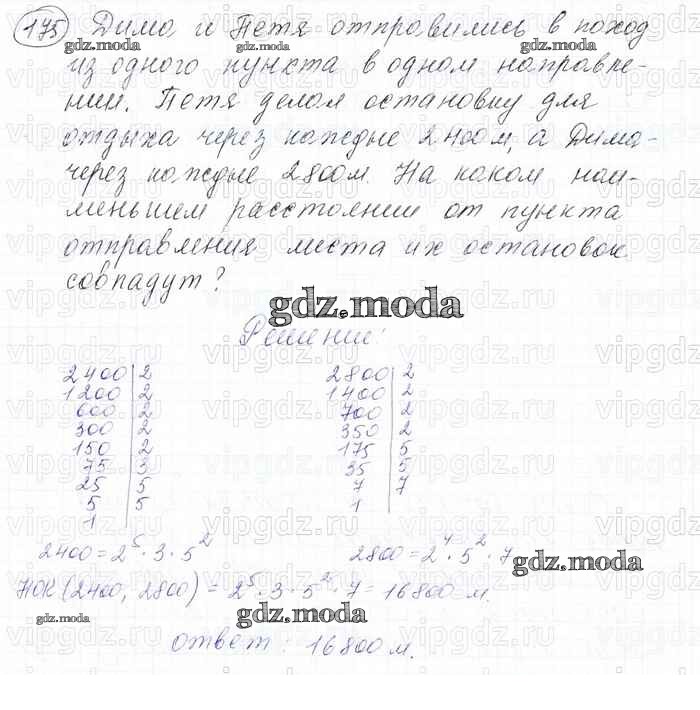 175 Дима и Петя отправились в поход
из одного пункта в одном направле-
нии. Петя делал остановку для
отдыха через каждые 2400м, а Дима-
через каждые 2800м. На каком наи-
меньшем расстоянии от пункта
отправления места их остановок
совпадут?
Решение:
2400 | 2
1200 | 2
600 | 2
300 | 2
150 | 2
75 | 3
25 | 5
5 | 5
1
2800 | 2
1400 | 2
700 | 2
350 | 2
175 | 5
35 | 5
7 | 7
1
2400 = 2⁵ · 3 · 5²
2800 = 2⁴ · 5² · 7
НОК (2400, 2800) = 2⁵ · 3 · 5² · 7 = 16800 м.
ответ : 16800 м.
gdz.moda
vipgdz.ru